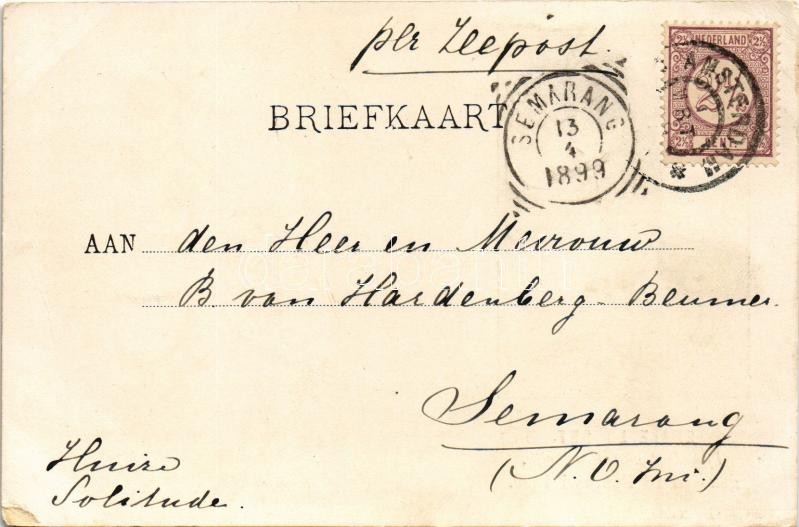 per Zeepost.
2½ NEDERLAND 2½
2½ CENT 2½
AMSTERDAM
BRIEFKAART
SEMARANG
13
4
1899
AAN den Heer en Mevrouw
B. van Hardenberg-Beumer.
Semarang
(N.O. Ini.)
Huize
Solitude.